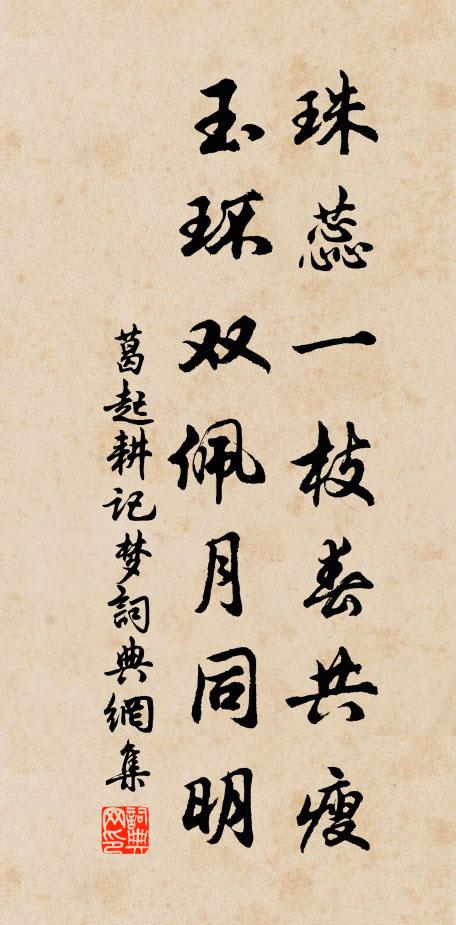 珠蕊一枝春共瘦
玉环双佩月同明
葛起耕记梦詞典網集
詞典网印